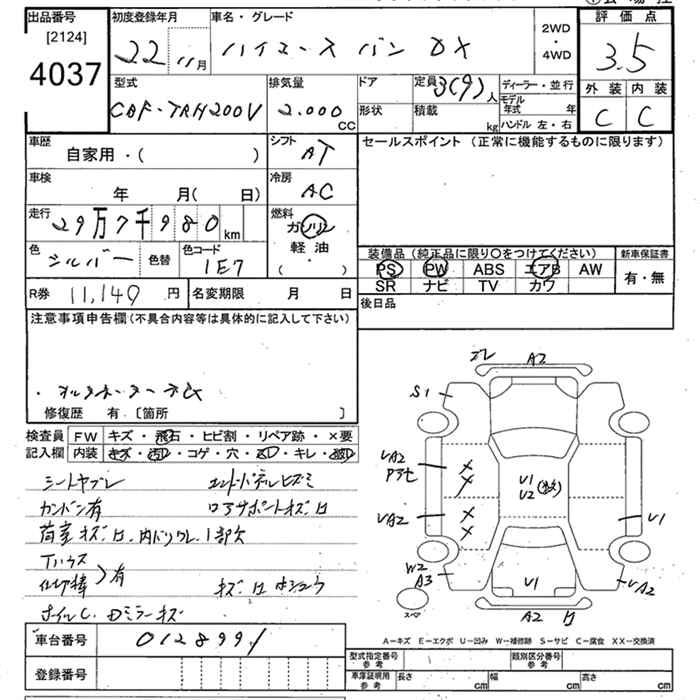 出品番号 [2124] 4037
初度登録年月 22 11月
車名・グレード ハイエース バン DX
2WD・4WD
評価点 3.5
型式 CBF-TRH200V
排気量 2.000 CC
ドア 形状
定員 3(9)人
積載 kg
ディーラー・並行
モデル年式 年
ハンドル 左・右
外装 C 内装 C
車歴 自家用・( )
シフト AT
セールスポイント (正常に機能するものに限ります)
車検 年 月( 日)
冷房 AC
走行 29万7千980km
燃料 ガソリン 軽油 ( ・ )
色 シルバー 色替 色コード 1E7
装備品 (純正品に限り〇をつけてください) 新車保証書
PS PW ABS エアB AW 有・無
SR ナビ TV カワ
R券 11,140円 名変期限 月 日
後日品
注意事項申告欄 (不具合内容等は具体的に記入して下さい)
修復歴 有 〔箇所 〕
検査員 FW キズ・飛石・ヒビ割・リペア跡・×要
記入欄 内装 キズ・汚レ・コゲ・穴・
シートヤブレ
カンバン有
荷室キズ凹、内ドリワレ、1部欠
Tハウス
有
キズ凹
ホイルC、Dミラーキズ
S1
A2
VA2
Pアセ
VA2
U1
U2
V1
W2
A3
U1
VA2
A2
スペア
A-キズ E-エクボ U-凹み W-補修跡 S-サビ C-腐食 XX-交換済
車台番号 0128991
登録番号
型式指定番号 参考 類別区分番号 参考
車庫証明用 参考 長さ cm 幅 cm 高さ cm